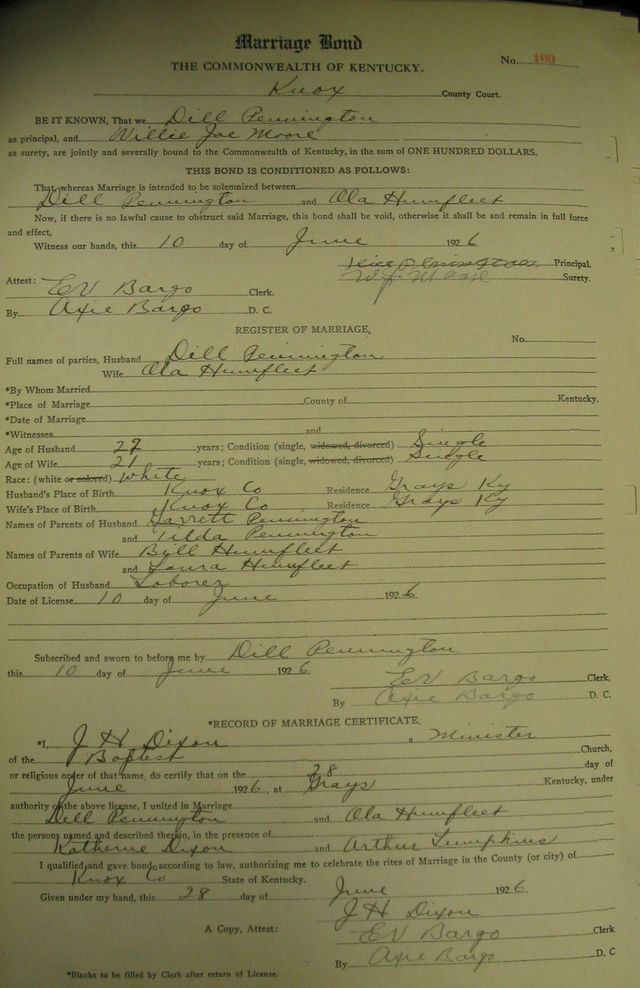 Marriage Bond
THE COMMONWEALTH OF KENTUCKY. No. 100
Knox County Court.
BE IT KNOWN, That we Dill Pennington
as principal, and Willie Joe Moore
as surety, are jointly and severally bound to the Commonwealth of Kentucky, in the sum of ONE HUNDRED DOLLARS.
THIS BOND IS CONDITIONED AS FOLLOWS:
That whereas Marriage is intended to be solemnized between
Dill Pennington and Ola Humfleet
Now, if there is no lawful cause to obstruct said Marriage, this bond shall be void, otherwise it shall be and remain in full force
and effect,
Witness our hands, this 10 day of June 1926
Principal.
W J Moore Surety.
Attest: EV Bargo Clerk.
By Axie Bargo D. C.
REGISTER OF MARRIAGE,
No.
Full names of parties, Husband Dill Pennington
Wife Ola Humfleet
*By Whom Married
*Place of Marriage County of Kentucky,
*Date of Marriage
*Witnesses and
Age of Husband 22 years; Condition (single, widowed, divorced) Single
Age of Wife 21 years; Condition (single, widowed, divorced) Single
Race: (white or colored) White
Husband's Place of Birth Knox Co Residence Grays Ky
Wife's Place of Birth Knox Co Residence Grays Ky
Names of Parents of Husband Garrett Pennington
and Tilda Pennington
Names of Parents of Wife Bill Humfleet
and Laura Humfleet
Occupation of Husband Laborer
Date of License 10 day of June 1926
Subscribed and sworn to before me by Dill Pennington
this 10 day of June 1926
EV Bargo Clerk.
By Axie Bargo D. C.
*RECORD OF MARRIAGE CERTIFICATE.
*I, J H Dixon a Minister
of the Baptist Church,
or religious order of that name, do certify that on the 28 day of
June 1926, at Grays Kentucky, under
authority of the above license, I united in Marriage
Dell Pennington and Ola Humfleet
the persons named and described therein, in the presence of
Katherine Dixon and Arthur Lumpkins
I qualified and gave bond according to law, authorizing me to celebrate the rites of Marriage in the County (or city) of
Knox Co State of Kentucky.
Given under my hand, this 28 day of June 1926
J H Dixon
A Copy, Attest: EV Bargo Clerk
By Axie Bargo D. C
*Blanks to be filled by Clerk after return of License.